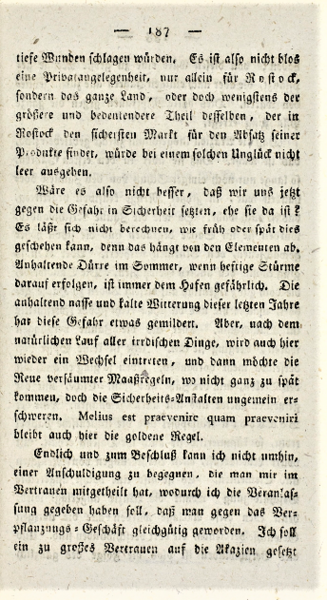 — 187 —
tiefe Wunden schlagen würden. Es ist also nicht blos
eine Privatangelegenheit, nur allein für Rostock,
sondern das ganze Land, oder doch wenigstens der
größere und bedeutendere Theil desselben, der in
Rostock den sichersten Markt für den Absatz seiner
Produkte findet, würde bei einem solchen Unglück nicht
leer ausgehen.
Wäre es also nicht besser, daß wir uns jetzt
gegen die Gefahr in Sicherheit setzten, ehe sie da ist?
Es läßt sich nicht berechnen, wie früh oder spät dies
geschehen kann, denn das hängt von den Elementen ab.
Anhaltende Dürre im Sommer, wenn heftige Stürme
darauf erfolgen, ist immer dem Hafen gefährlich. Die
anhaltend nasse und kalte Witterung dieser letzten Jahre
hat diese Gefahr etwas gemildert. Aber, nach dem
natürlichen Lauf aller irrdischen Dinge, wird auch hier
wieder ein Wechsel eintreten, und dann möchte die
Reue versäumter Maaßregeln, wo nicht ganz zu spät
kommen, doch die Sicherheits-Anstalten ungemein er-
schweren. Melius est praevenire quam praeveniri
bleibt auch hier die goldene Regel.
Endlich und zum Beschluß kann ich nicht umhin,
einer Anschuldigung zu begegnen, die man mir im
Vertrauen mitgetheilt hat, wodurch ich die Veranlas-
sung gegeben haben soll, daß man gegen das Ver-
pflanzungs-Geschäft gleichgütig geworden. Ich soll
ein zu großes Vertrauen auf die Akazien gesetzt